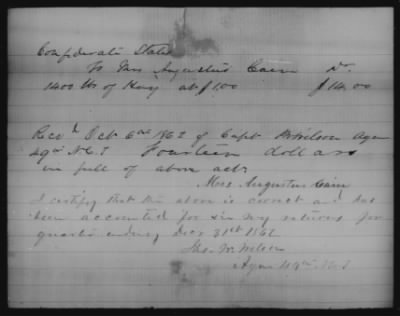 Confederate States
To Mrs Augustus Cain Dr.
1400 lbs of Hay at $1.00 $14.00
Recd Oct 6th 1862 of Capt Wilson Aqm
49th N.C.T. Fourteen dollars
in full of above act.
Mrs Augustus Cain
I certify that the above is correct and has
been accounted for in my returns for
quarter ending Decr 31st 1862
Jas. W. Wilson
Aqm 49th N.C.T.